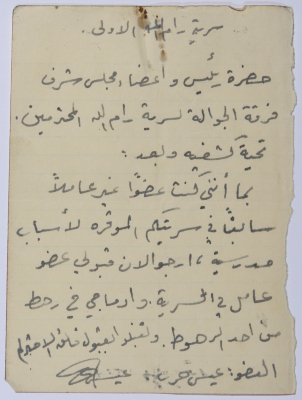 سرية رام الله الاولى.
حضرة رئيس واعضاء مجلس شرف
فرقة الجوالة لسرية رام الله المحترمين.
تحية كشفيه وبعد :
بما أنني كنت عضوًا غير عاملاً
سابقًا في سريتكم الموقره لأسباب
مدرسية ، ارجو الان قبولي عضو
عامل في السرية وادماجي في رهط
من احد الرهوط. ولتفضلوا بقبول فائق الاحترام
العضو: عيسى